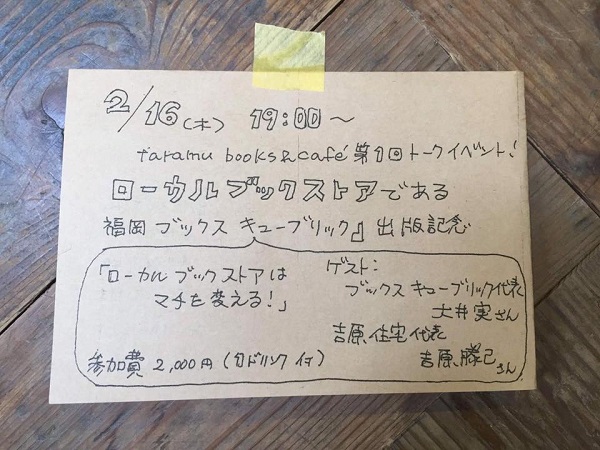 2/16(木) 19:00〜
taramu books&café 第1回トークイベント!
ローカルブックストアである
福岡 ブックス キューブリック』出版記念
「ローカル ブックストアは
マチを変える!」
ゲスト:
ブックス キューブリック代表
大井実さん
吉原住宅代表
吉原勝己さん
参加費 2,000円(1ドリンク付)